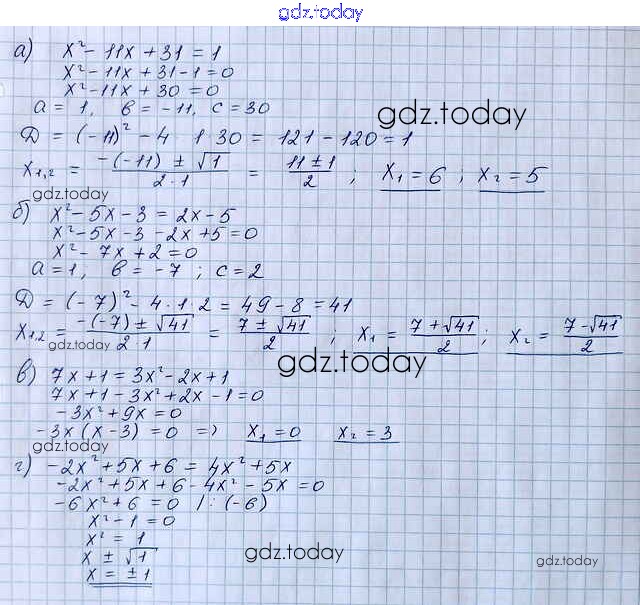 gdz.today
а) x² - 11x + 31 = 1
x² - 11x + 31 - 1 = 0
x² - 11x + 30 = 0
a = 1, b = -11, c = 30
gdz.today
Д = (-11)² - 4 1 30 = 121 - 120 = 1
x₁,₂ = (-(-11) ± √1)/(2·1) = (11 ± 1)/2 ; x₁ = 6 ; x₂ = 5
gdz.today
б) x² - 5x - 3 = 2x - 5
x² - 5x - 3 - 2x + 5 = 0
x² - 7x + 2 = 0
a = 1, b = -7 ; c = 2
Д = (-7)² - 4·1·2 = 49 - 8 = 41
x₁,₂ = (-(-7) ± √41)/(2·1) = (7 ± √41)/2 ; x₁ = (7 + √41)/2 ; x₂ = (7 - √41)/2
gdz.today
gdz.today
в) 7x + 1 = 3x² - 2x + 1
7x + 1 - 3x² + 2x - 1 = 0
-3x² + 9x = 0
-3x (x - 3) = 0 => x₁ = 0 x₂ = 3
gdz.today
г) -2x² + 5x + 6 = 4x² + 5x
-2x² + 5x + 6 - 4x² - 5x = 0
-6x² + 6 = 0 /: (-6)
x² - 1 = 0
x² = 1
x ± √1
x = ±1
gdz.today
gdz.today